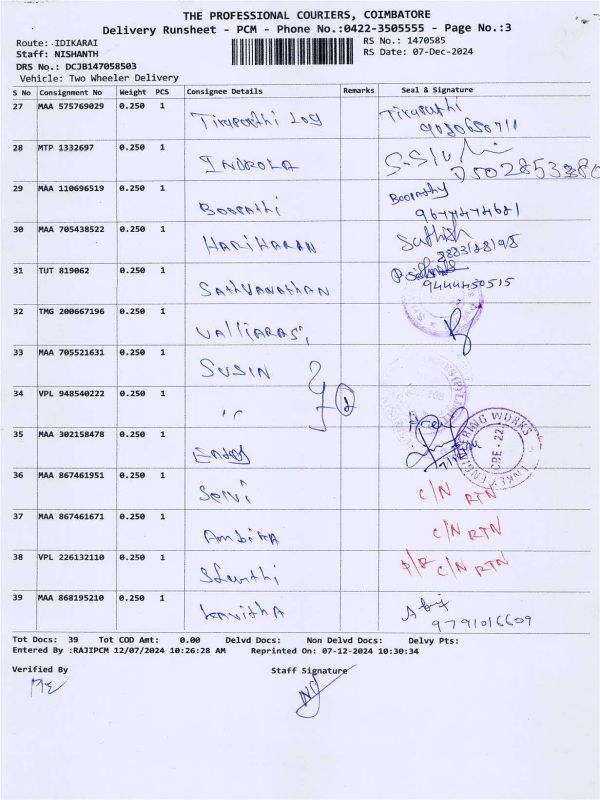 THE PROFESSIONAL COURIERS, COIMBATORE
Delivery Runsheet - PCM - Phone No.:0422-3505555 - Page No.:3
Route: IDIKARAI RS No.: 1470585
Staff: NISHANTH RS Date: 07-Dec-2024
DRS No.: DCJB147058503
Vehicle: Two Wheeler Delivery
S No Consignment No Weight PCS Consignee Details Remarks Seal & Signature
27 MAA 575769029 0.250 1 Tirupathi Log Tirupathi
28 MTP 1332697 0.250 1 INDROLA
29 MAA 110696519 0.250 1 Boopathi Boopathy
9677474681
30 MAA 705438522 0.250 1 HARIHARAN Sathish
31 TUT 819062 0.250 1 Sathvanathan
9444450515
32 TMG 200667196 0.250 1 Valliarasi
33 MAA 705521631 0.250 1 SUSIN
34 VPL 948540222 0.250 1 "
35 MAA 302158478 0.250 1
ENGINEERING WORKS
CBE - 22
36 MAA 867461951 0.250 1 Selvi C/N RTN
37 MAA 867461671 0.250 1 Ambika C/N RTN
38 VPL 226132110 0.250 1 C/N RTN
39 MAA 868195210 0.250 1 Kavitha
9791016609
Tot Docs: 39 Tot COD Amt: 0.00 Delvd Docs: Non Delvd Docs: Delvy Pts:
Entered By :RAJIPCM 12/07/2024 10:26:28 AM Reprinted On: 07-12-2024 10:30:34
Verified By Staff Signature